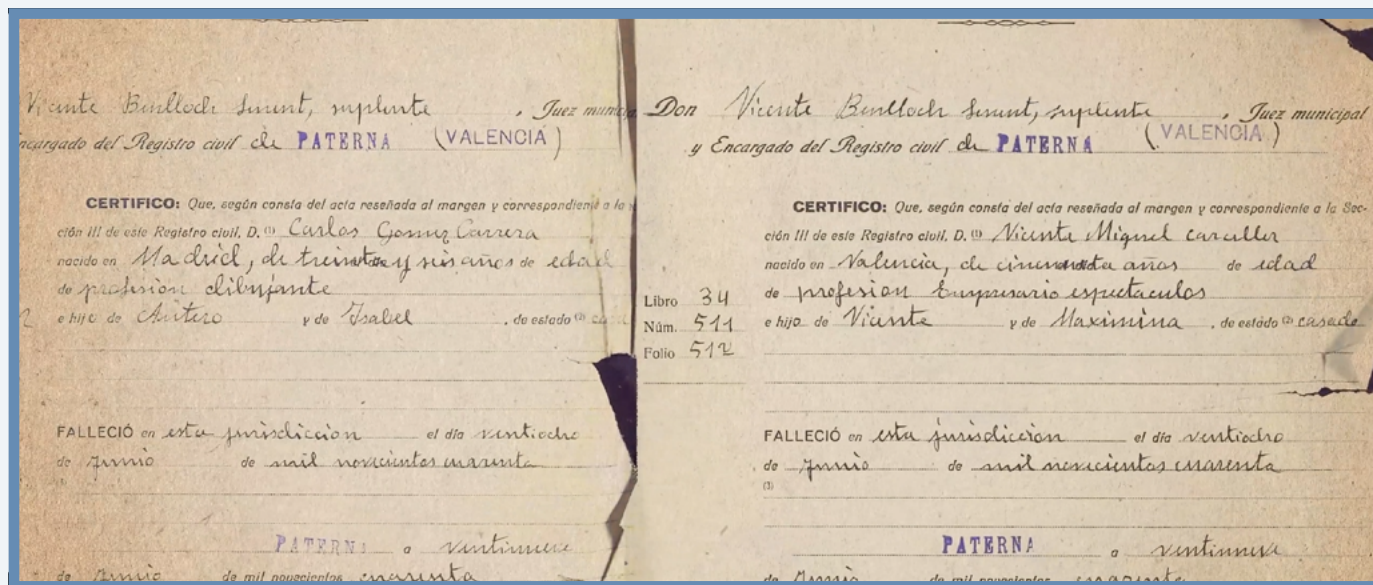 Vicente Benlloch Senent, suplente, Juez
Encargado del Registro civil de PATERNA (VALENCIA)
CERTIFICO: Que, según consta del acta reseñada al margen y correspondiente a la
ción III de este Registro civil, D. (1) Carlos Gomez Carrera
nacido en Madrid, de treinta y seis años de edad
de profesión dibujante
e hijo de Antero y de Isabel, de estado (2)
FALLECIÓ en esta jurisdiccion el día ventiocho
de Junio de mil novecientos cuarenta
PATERNA a ventinueve
de Junio de mil novecientos cuarenta
Don Vicente Benlloch Senent, suplente, Juez municipal
y Encargado del Registro civil de PATERNA (VALENCIA)
CERTIFICO: Que, según consta del acta reseñada al margen y correspondiente a la Sec-
ción III de este Registro civil, D. (1) Vicente Miguel Carceller
nacido en Valencia, de cincuenta años de edad
Libro 34
de profesion Empresario espectaculos
Núm. 511
e hijo de Vicente y de Maximina, de estado (2) casado
Folio 512
FALLECIÓ en esta jurisdiccion el día ventiocho
de Junio de mil novecientos cuarenta
(3)
PATERNA a ventinueve
de Junio de mil novecientos cuarenta